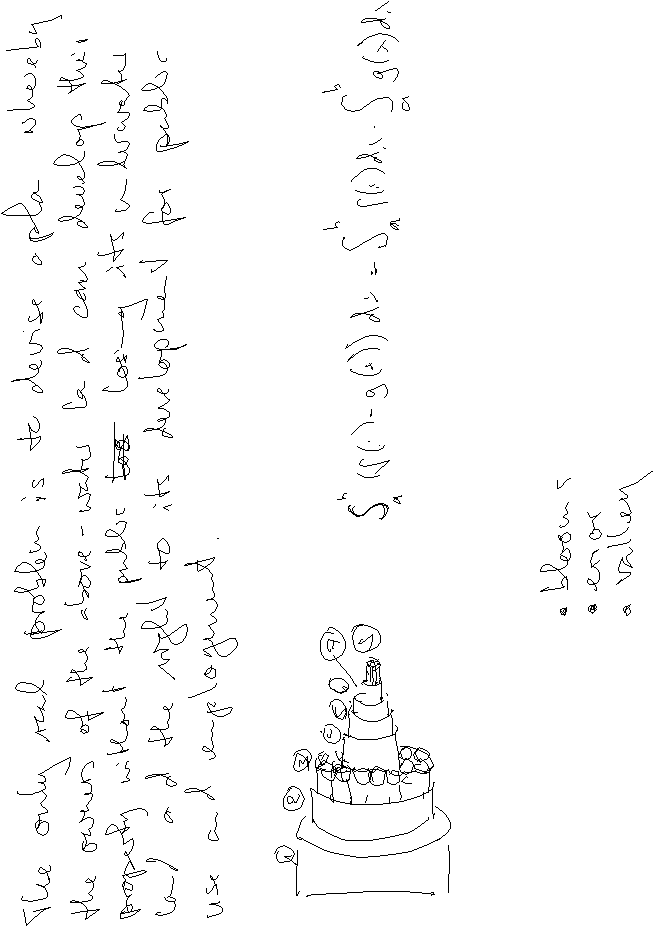 The only real problem is to devise a pla whereby
the owner of the above-water la d can develop this
property without the public losing its underwater
la d a d the right to its development for public
use and employment.
∫_a^b (f(x) - g(x)) dx = ∫_a^b f(x) dx - ∫_a^b g(x) dx
• blooms
• error
• valley